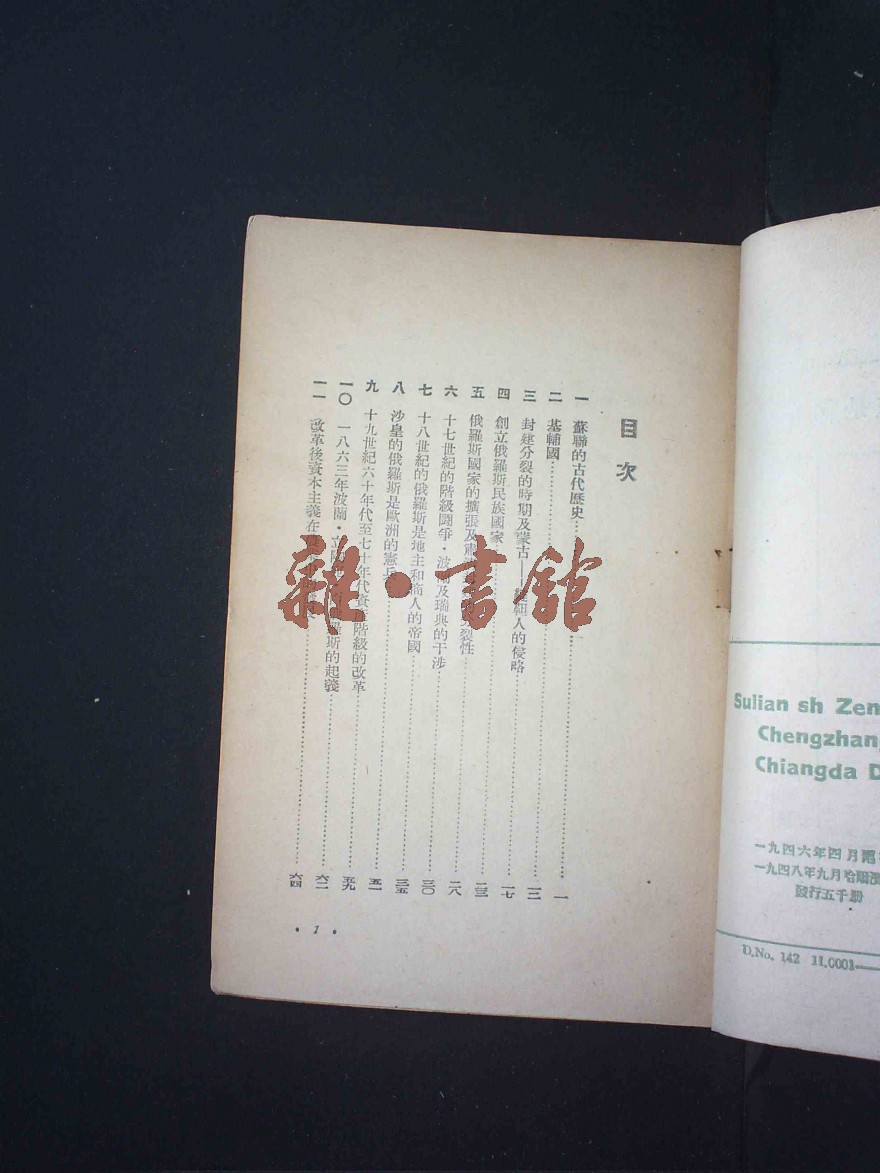 目次
一 蘇聯的古代歷史 一
二 基輔國 一二
三 封建分裂的時期及蒙古——人的侵略 一七
四 創立俄羅斯民族國家
五 俄羅斯國家的擴張及 裂性
六 十七世紀的階級鬪爭·波蘭及瑞典的干涉 二八
七 十八世紀的俄羅斯是地主和商人的帝國 三〇
八 沙皇的俄羅斯是歐洲的憲兵 三五
九 十九世紀六十年代至七十年代資產階級的改革 五一
一〇 一八六三年波蘭·立陶 羅斯的起義 五九
一一 改革後資本主義在 六二
六四
· 1 ·
雜·書館
Sulian sh Zen
Chengzhan
Chiangda D
一九四六年四月
一九四八年九月哈爾濱
發行五千册
D.No. 142 11.0001—